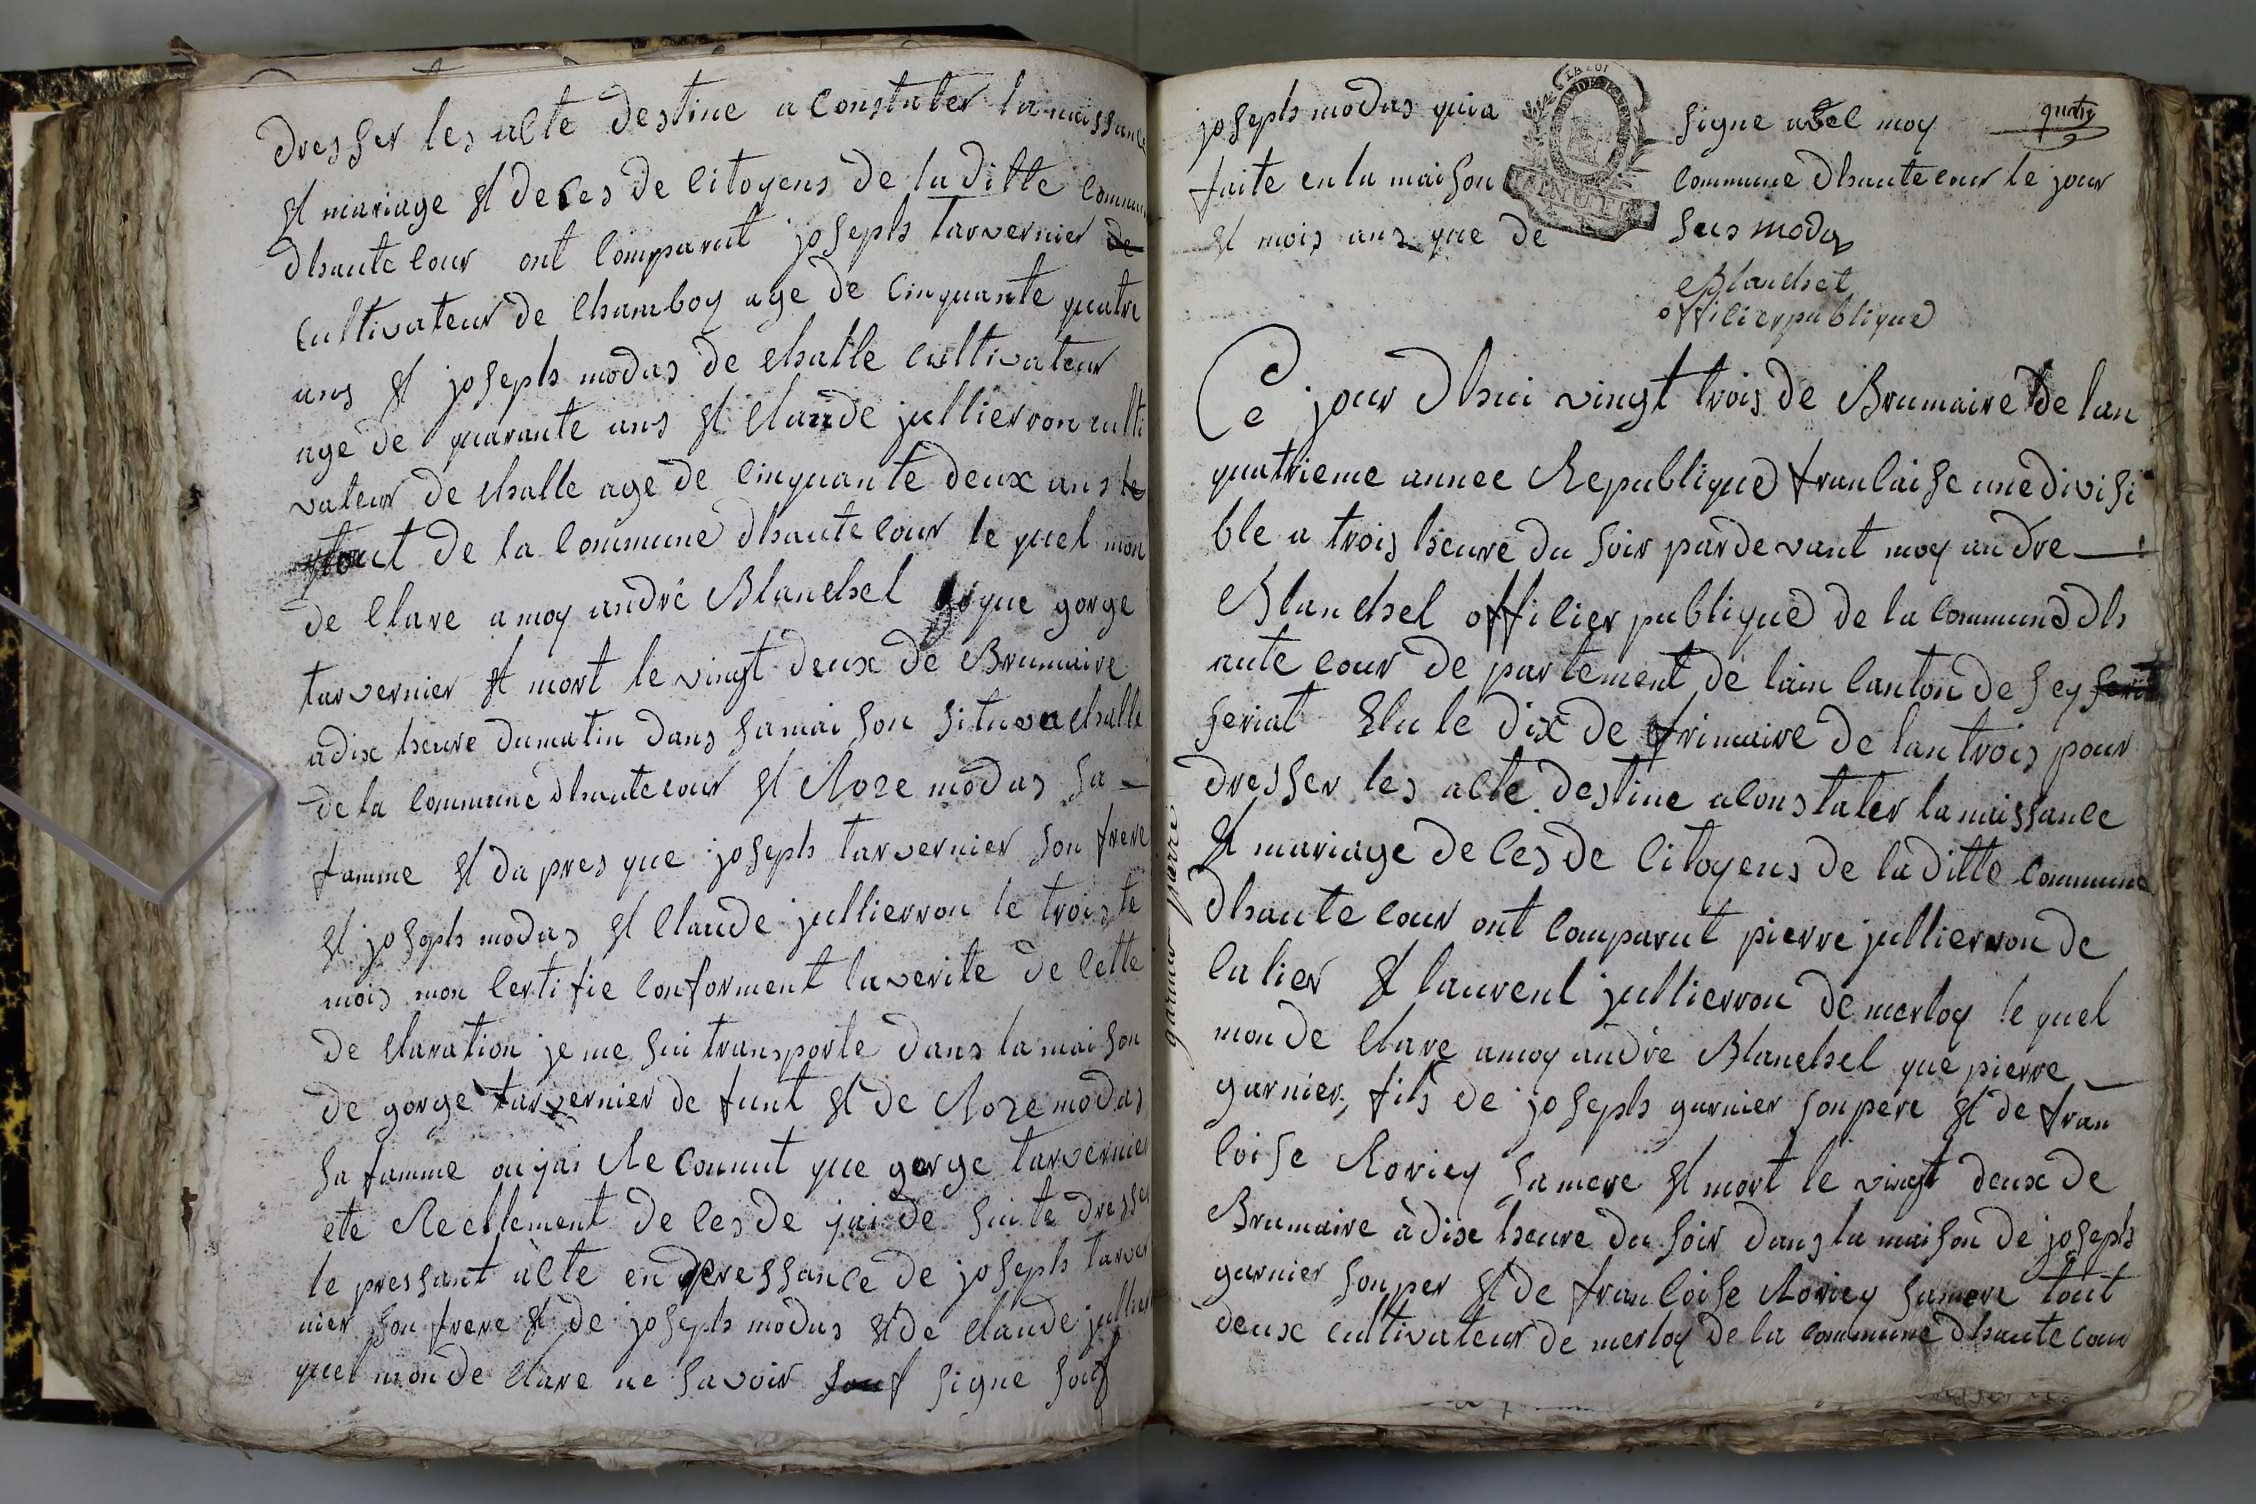 dresser les acte destine a constater la naissance
et mariage et deces de citoyens de la ditte commun
dhaute cour ont comparut joseph tarvernier de
cultivateur de chamboy age de cinquante quatre
ans et joseph modas de challe cultivateur
age de quarante ans et claude jullierron culti
vateur de challe age de cinquante deux ans
tout de la commune dhaute cour le quel mon
de clare a moy andré Blanchet que gorge
tarvernier et mort le vingt deux de Brumaire
a dix heure du matin dans sa mai son situe a challe
de la commune dhaute cour et Roze modas sa
famme et da pres que joseph tarvernier son frere
et joseph modas et claude jullierron le trois te
mois mon certifie conforment la verite de cette
de claration je me sui transporte dans la mai son
de gorge tarvernier de funt et de Roze modas
sa famme ou jai Re connut que gorge tarvernier
ete Reellement de ces de jai de suite dresser
le pressant àcte en pressance de joseph tarver
nier son frere et de joseph modas et de claude jullier
quel mon de clare ne savoir signe souf
joseph modas qui a signe avec moy
faite en la maison commune dhaute cour le jour
et mois ans que de sus modas
Blanchet
officier publique
quatre
LA LOI
Ce jour dhui vingt trois de Brumaire de lan
quatrieme annee Republique francaise une divisi
ble a trois heure du soir par de vant moy andre
Blanchet officier publique de la commune dh
aute cour de partement de lain canton de sey
seriat Elu le dix de frimaire de lan trois pour
dresser les acte destine a constater la naissance
et mariage de ces de citoyens de la ditte commune
dhaute cour ont comparut pierre jullierron de
calier et laurent jullierron de merloy le quel
mon de clare a moy andrè Blanchet que pierre
garnier, fils de joseph garnier son pere et de fran
coise Roriey sa mere et mort le vingt deux de
Brumaire à dix heure du soir dans la maison de joseph
garnier son per et de francoise Roriey sa mere tout
deux cultivateur de merloy de la commune dhaute cour
garnier pierre